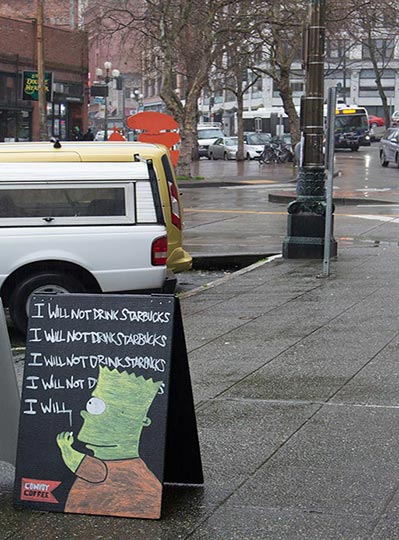 I WILL NOT DRINK STARBUCKS
I WILL NOT DRINK STARBUCKS
I WILL NOT DRINK STARBUCKS
I WILL NOT D
I WILL
COWBOY
COFFEE